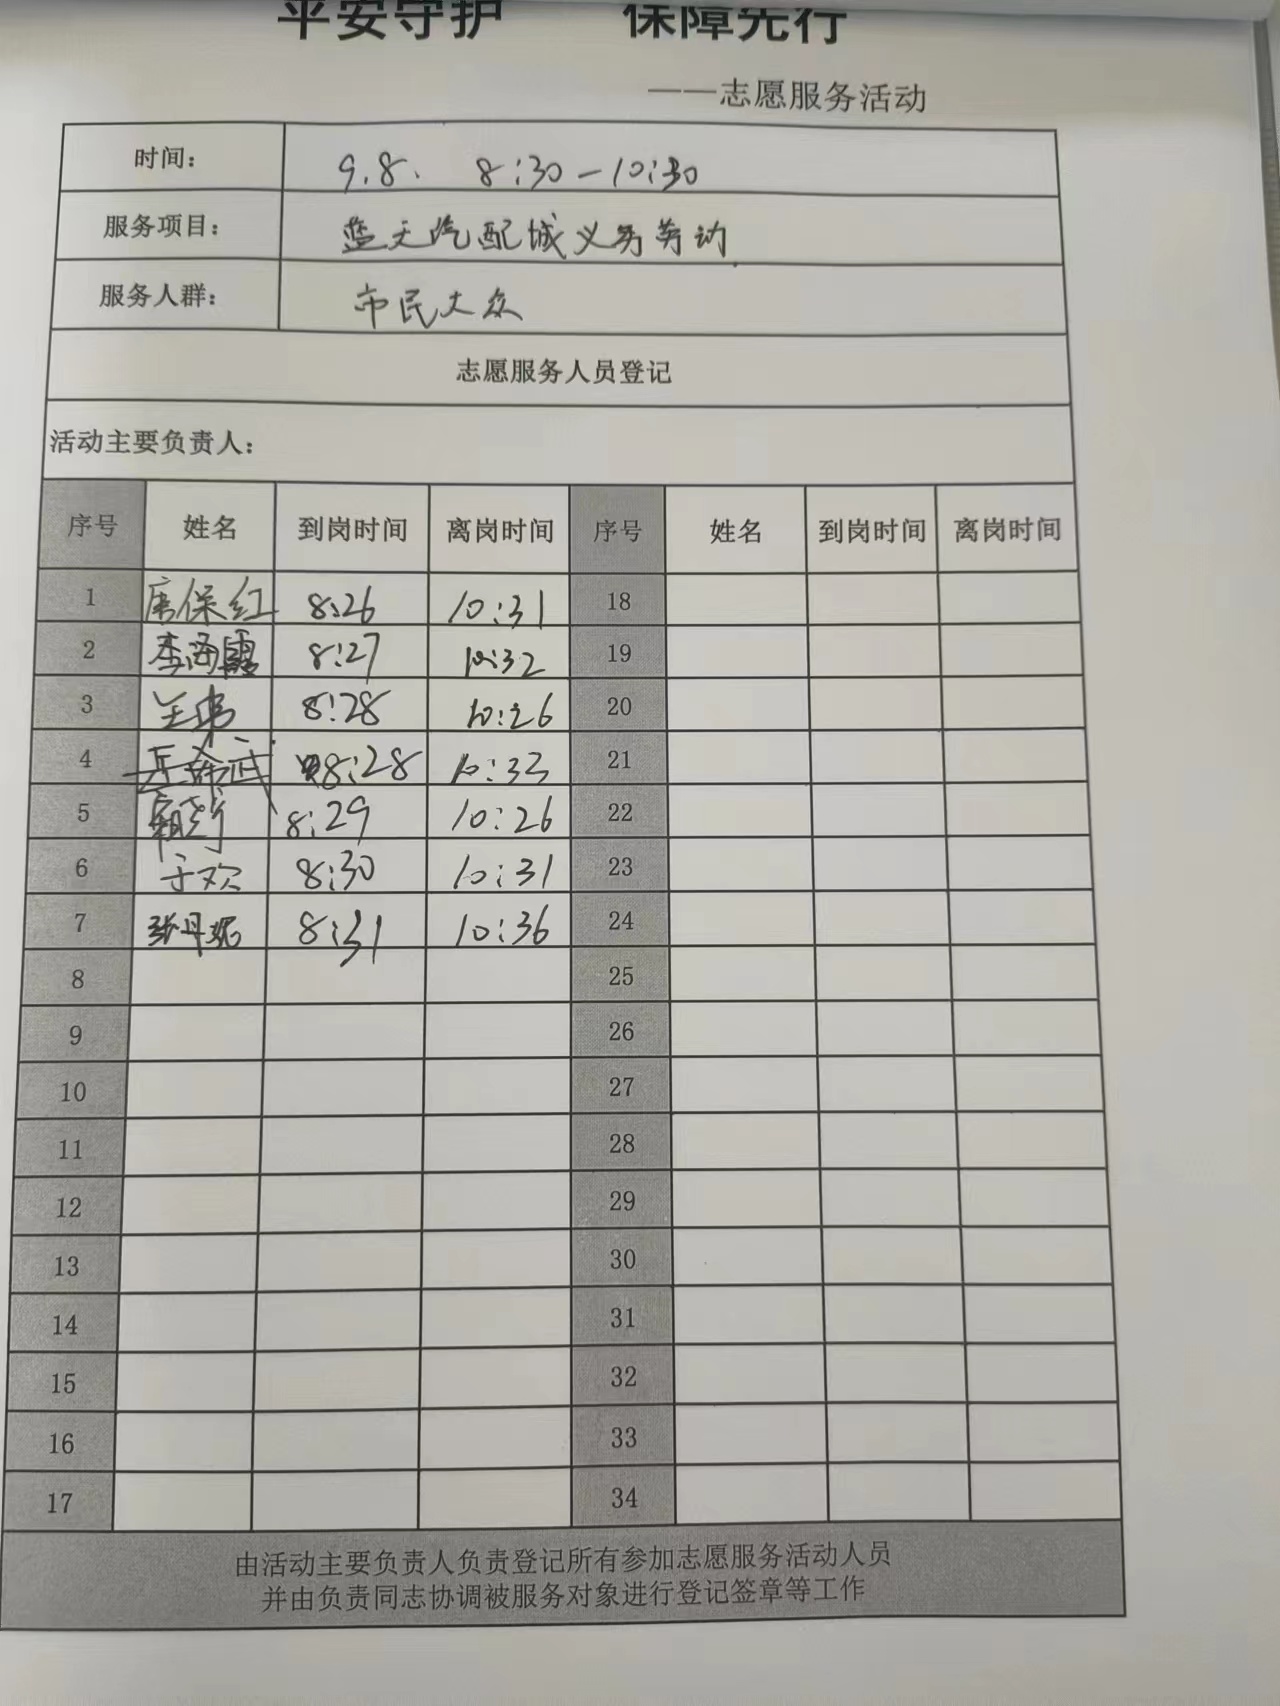 平安守护 保障先行
——志愿服务活动
时间： 9.8. 8:30—10:30
服务项目： 蓝天汽配城义务劳动.
服务人群： 市民大众
志愿服务人员登记
活动主要负责人：
序号 姓名 到岗时间 离岗时间 序号 姓名 到岗时间 离岗时间
1 唐保红 8:26 10:31 18
2 李海霞 8:27 10:32 19
3 8:28 10:26 20
4 8:28 10:33 21
5 8:29 10:26 22
6 于欢 8:30 10:31 23
7 张丹妮 8:31 10:36 24
8 25
9 26
10 27
11 28
12 29
13 30
14 31
15 32
16 33
17 34
由活动主要负责人负责登记所有参加志愿服务活动人员
并由负责同志协调被服务对象进行登记签章等工作